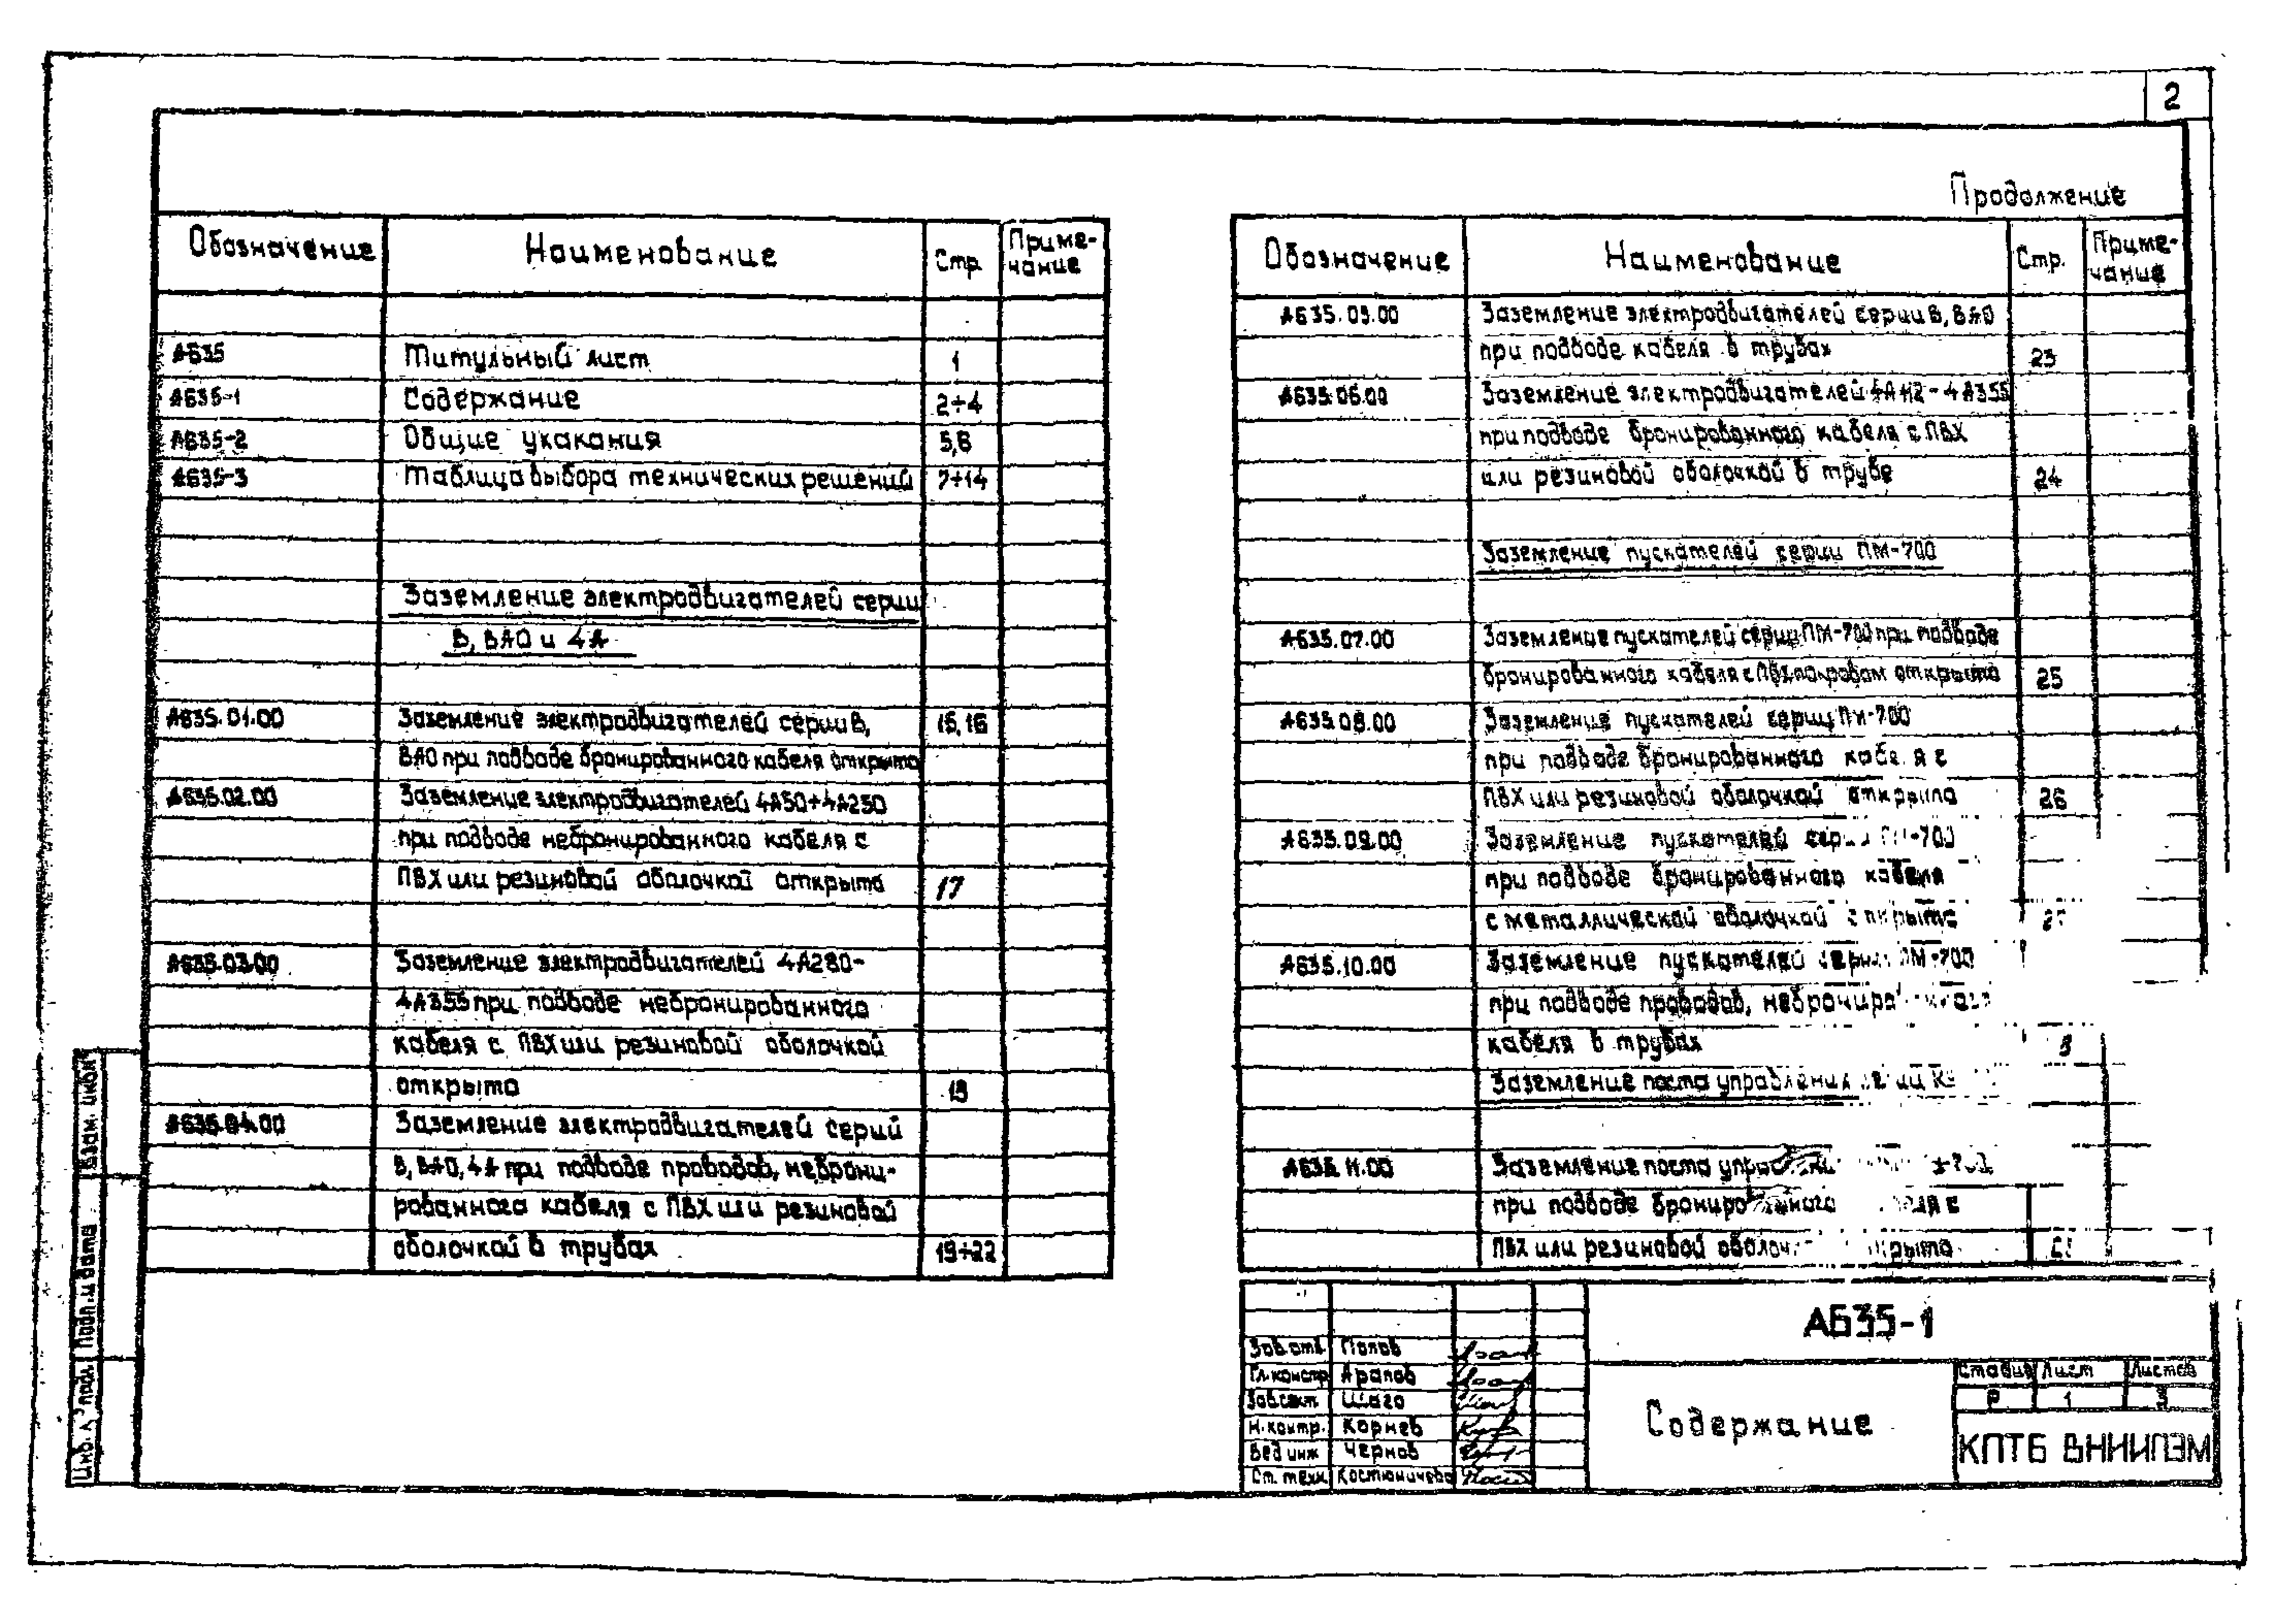 2
Обозначение Наименование Стр. Приме-чание
А635 Титульный лист 1
А635-1 Содержание 2÷4
А635-2 Общие укакания 5,6
А635-3 Таблица выбора технических решений 7÷14
Заземление электродвигателей серии
В, ВАО и 4А
А635.01.00 Заземление электродвигателей серии В, 15,16
ВАО при подводе бронированного кабеля открыто
А635.02.00 Заземление электродвигателей 4А50÷4А250
при подводе небронированного кабеля с
ПВХ или резиновой оболочкой открыто 17
А635.03.00 Заземление электродвигателей 4А280-
4А355 при подводе небронированного
кабеля с ПВХ или резиновой оболочкой
открыто
А635.04.00 Заземление электродвигателей серий
В, ВАО, 4А при подводе проводов, неброни-
рованного кабеля с ПВХ или резиновой
оболочкой в трубах 19÷22
Продолжение
Обозначение Наименование Стр. Приме-чание
А635.05.00 Заземление электродвигателей серии В, ВАО
при подводе кабеля в трубах 23
А635.06.00 Заземление электродвигателей 4А112-4А355
при подводе бронированного кабеля с ПВХ
или резиновой оболочкой в трубе 24
Заземление пускателей серии ПМ-700
А635.07.00 Заземление пускателей серии ПМ-700 при подводе
бронированного кабеля с ПВХ покровом открыто 25
А635.08.00 Заземление пускателей серии ПМ-700
при подводе бронированного кабе я с
ПВХ или резиновой оболочкой открыто 26
А635.09.00 Заземление пускателей серии ПМ-700
при подводе бронированного кабеля
с металлической оболочкой открыто
А635.10.00 Заземление пускателей серии ПМ-700
при подводе проводов,
кабеля в трубах
Заземление поста управления
А635.11.00 Заземление поста
при подводе с
ПВХ или резиновой
А635-1
Зав.отд. Попов
Гл.констр. Арапов
Зав.сект. Шаго
Н.контр. Корнев
Вед инж Чернов
Ст. техн. Костюничева
Содержание
Стадия Лист Листов
Р 1 3
КПТБ ВНИИПЭМ
Взам. инв.№
Подп. и дата
Инв. № подл.